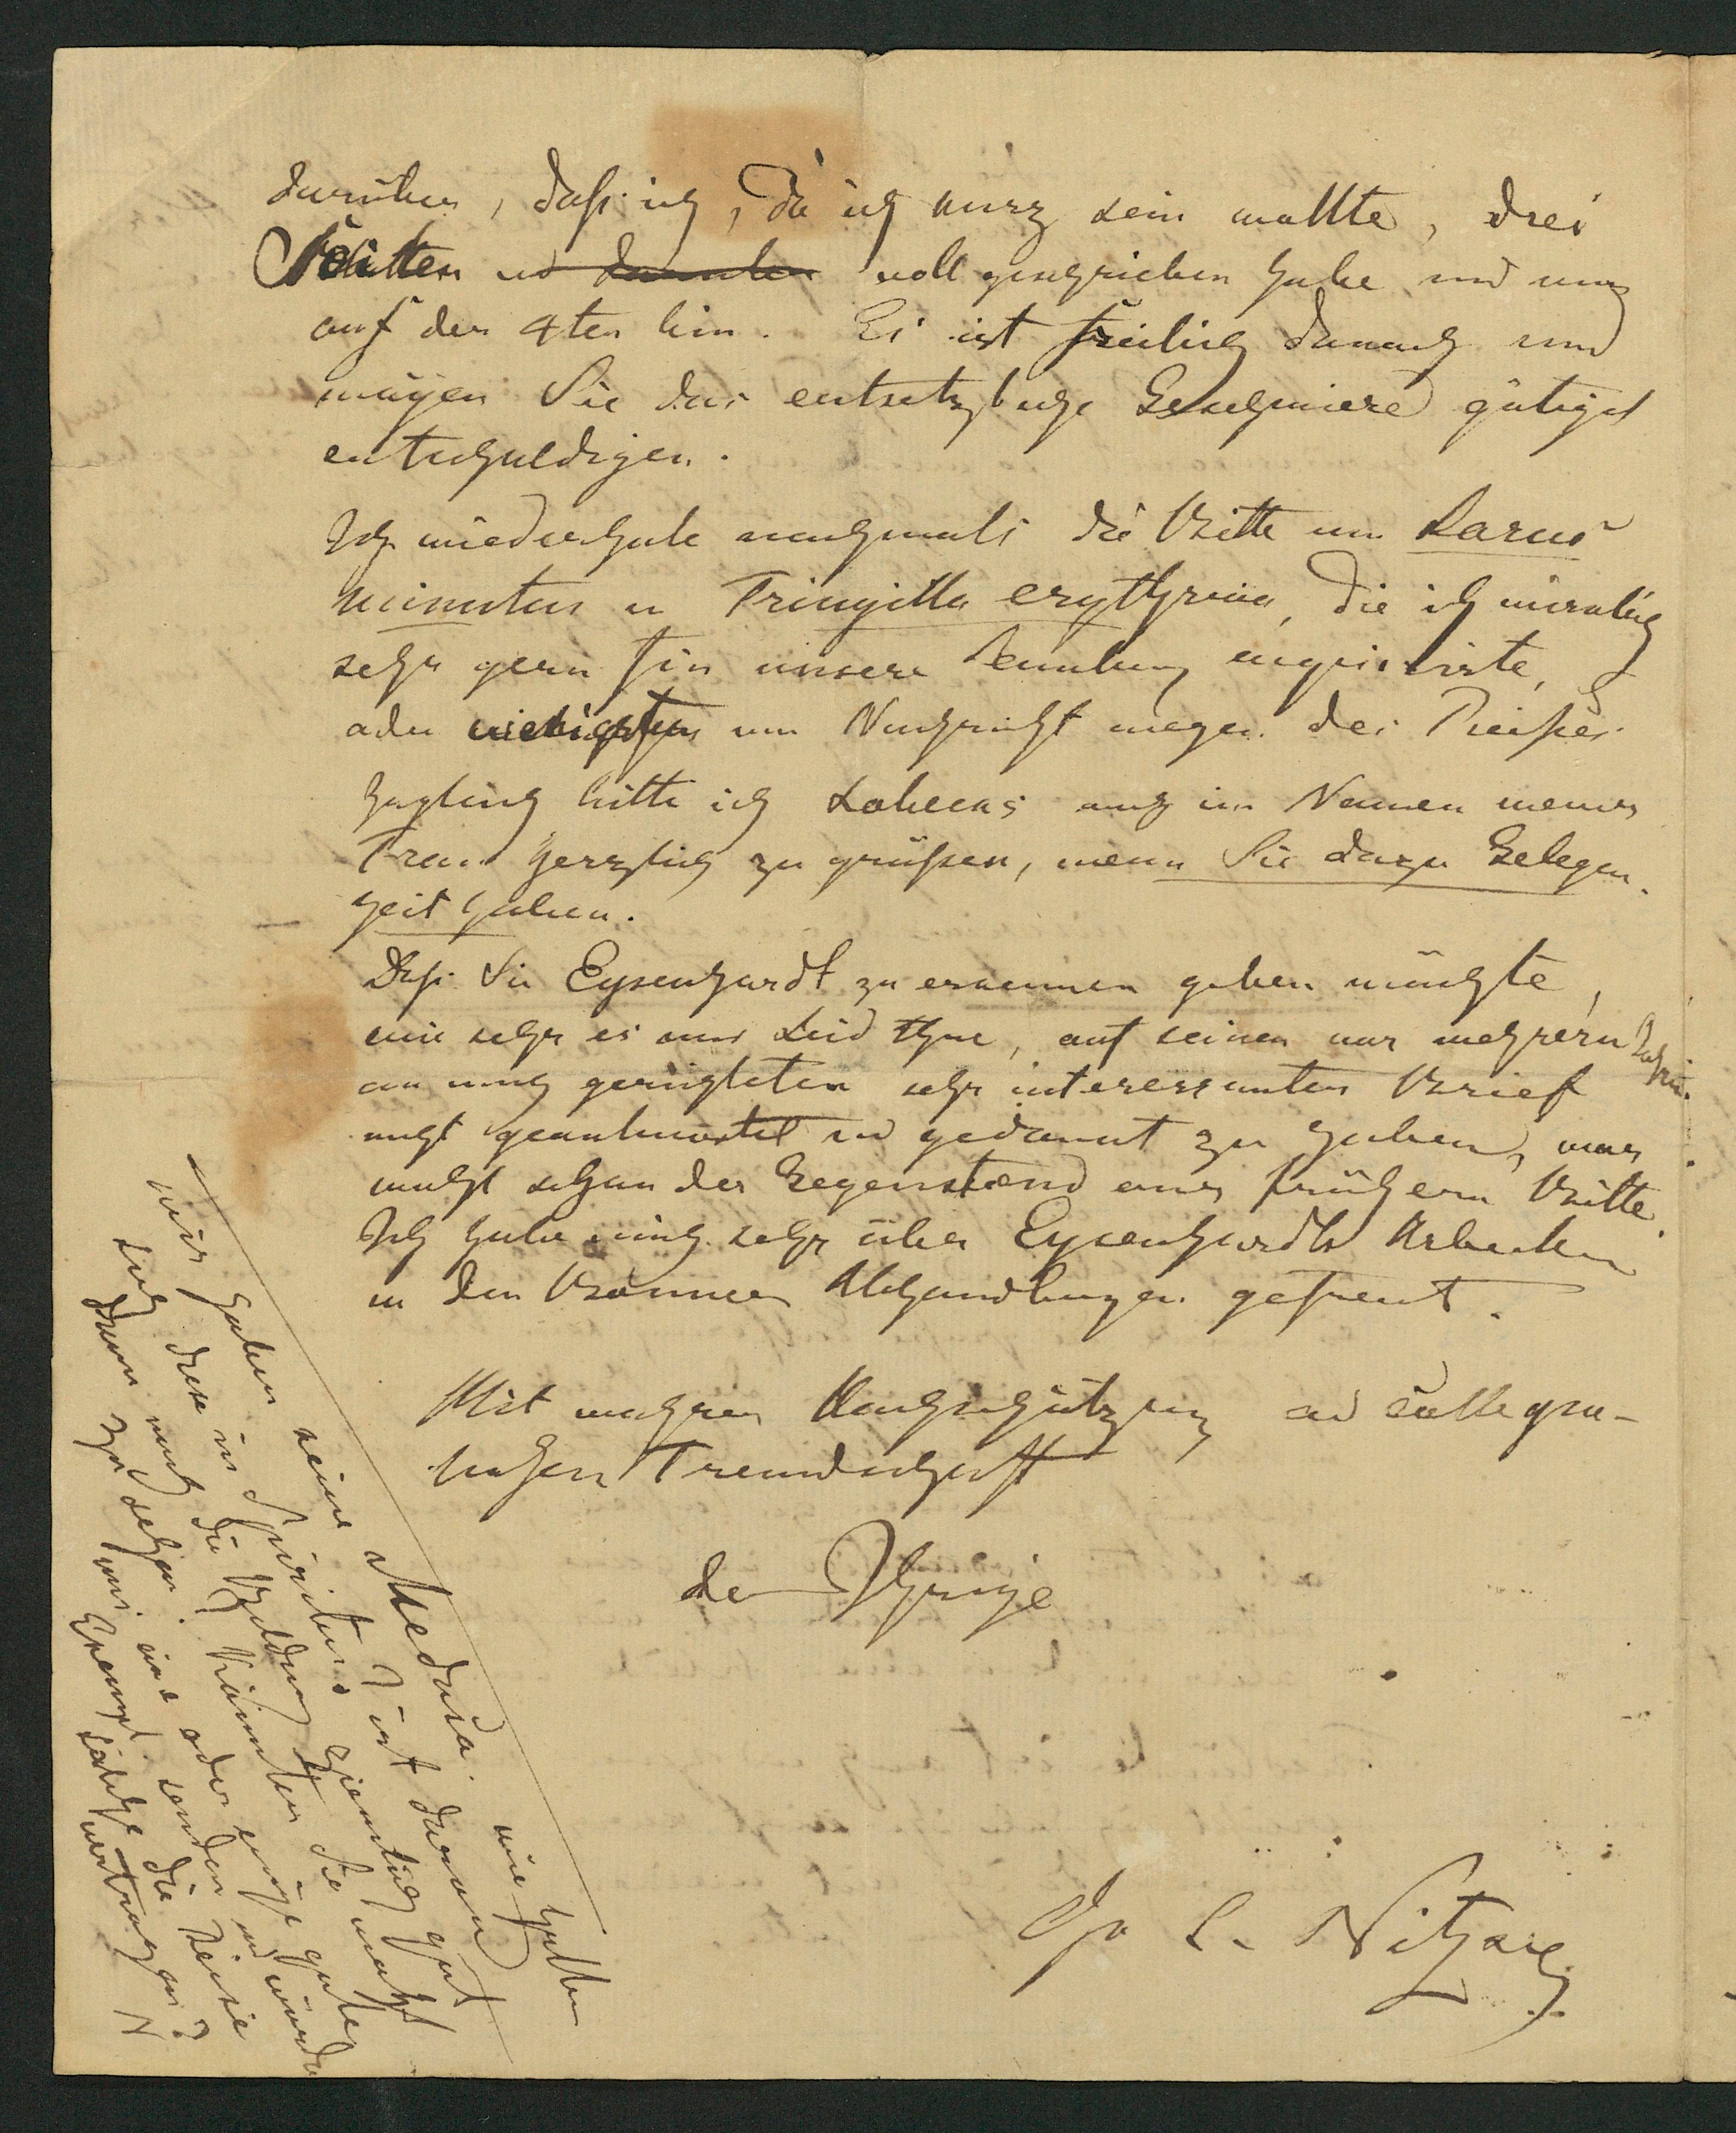 darüber, daß ich, da ich kurz sein wollte, drei
Seiten voll geschrieben habe und nun
auf der 4ten bin. Es ist freilich danach und
mögen Sie das entsetzliche Geschmiere gütigst
entschuldigen.
Ich wiederhole nochmals die Bitte um Larus
minutus u Fringilla erythrina, die ich nämlich
sehr gern für unsere Samlung acquirirte,
oder wenigstens um Nachricht wegen des Preißes.
Haglung bitte ich Lobecks auch im Namen meiner
Frau herzlich zu grüßen, wenn Sie dazu Gelegen-
heit haben.
Daß Sie Eysenhardt zu erkennen geben möchte,
wie sehr es mir Leid thue, auf seinen vor mehrern Jahren
an mich gerichteten sehr interessanten Brief
nicht geantwortet und gedankt zu haben, war
wohl schon der Gegenstand einer frühern Bitte.
Ich habe mich sehr über Eysenhardts Arbeiten
in den Bonner Abhandlungen gefreut.
Mit wahrer Hochschätzung und collegia-
lischer Freundschaft
der Ihrige
Chr L. Nitzsch
wir haben keine Medusa. wie halten
sich diese in Spiritus? ist daran
dann noch die Bildung ziemlich gut
zu sehen? Könnten Sie wohl
uns eine oder einige gute
Exempl. senden und würden
solche die Reise
vertragen?
N